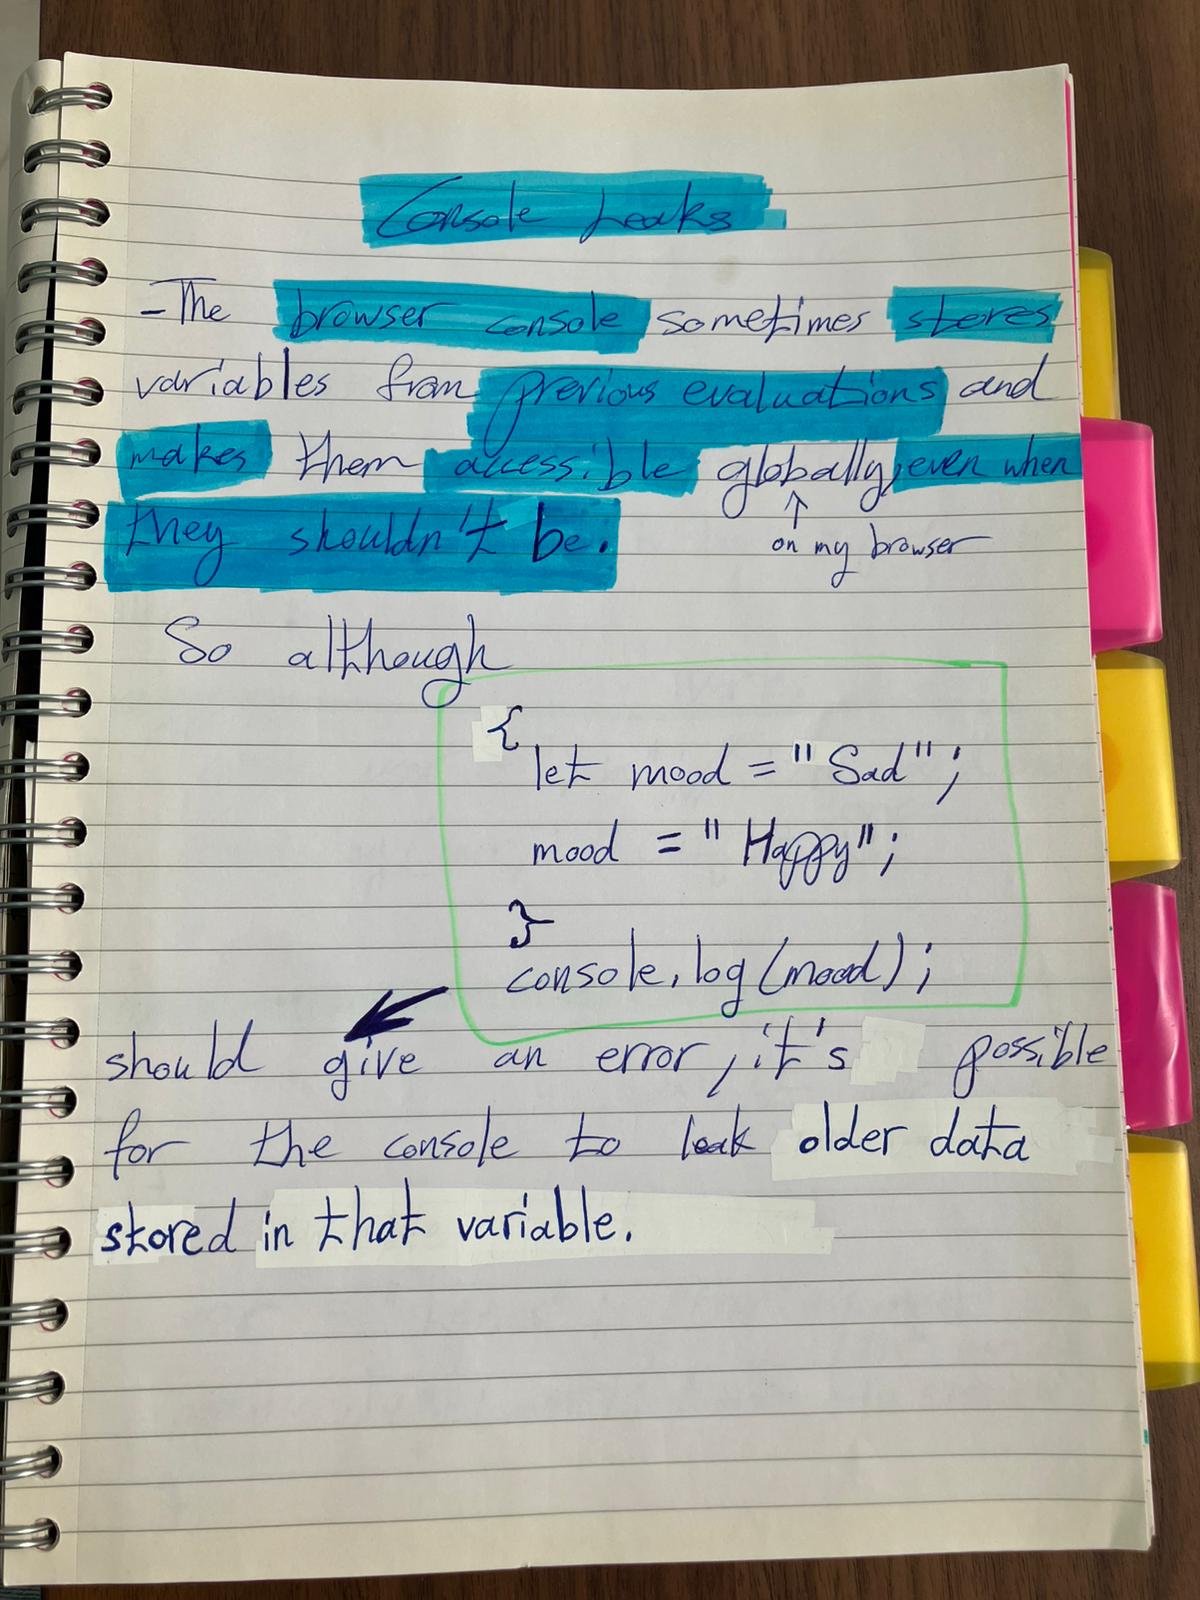 Console Leaks
-The browser console sometimes stores
variables from previous evaluations and
makes them accessible globally, even when
they shouldn't be.
↑
on my browser
So although
{
let mood = "Sad";
mood = "Happy";
}
console.log(mood);
should give an error, it's possible
for the console to leak older data
stored in that variable.